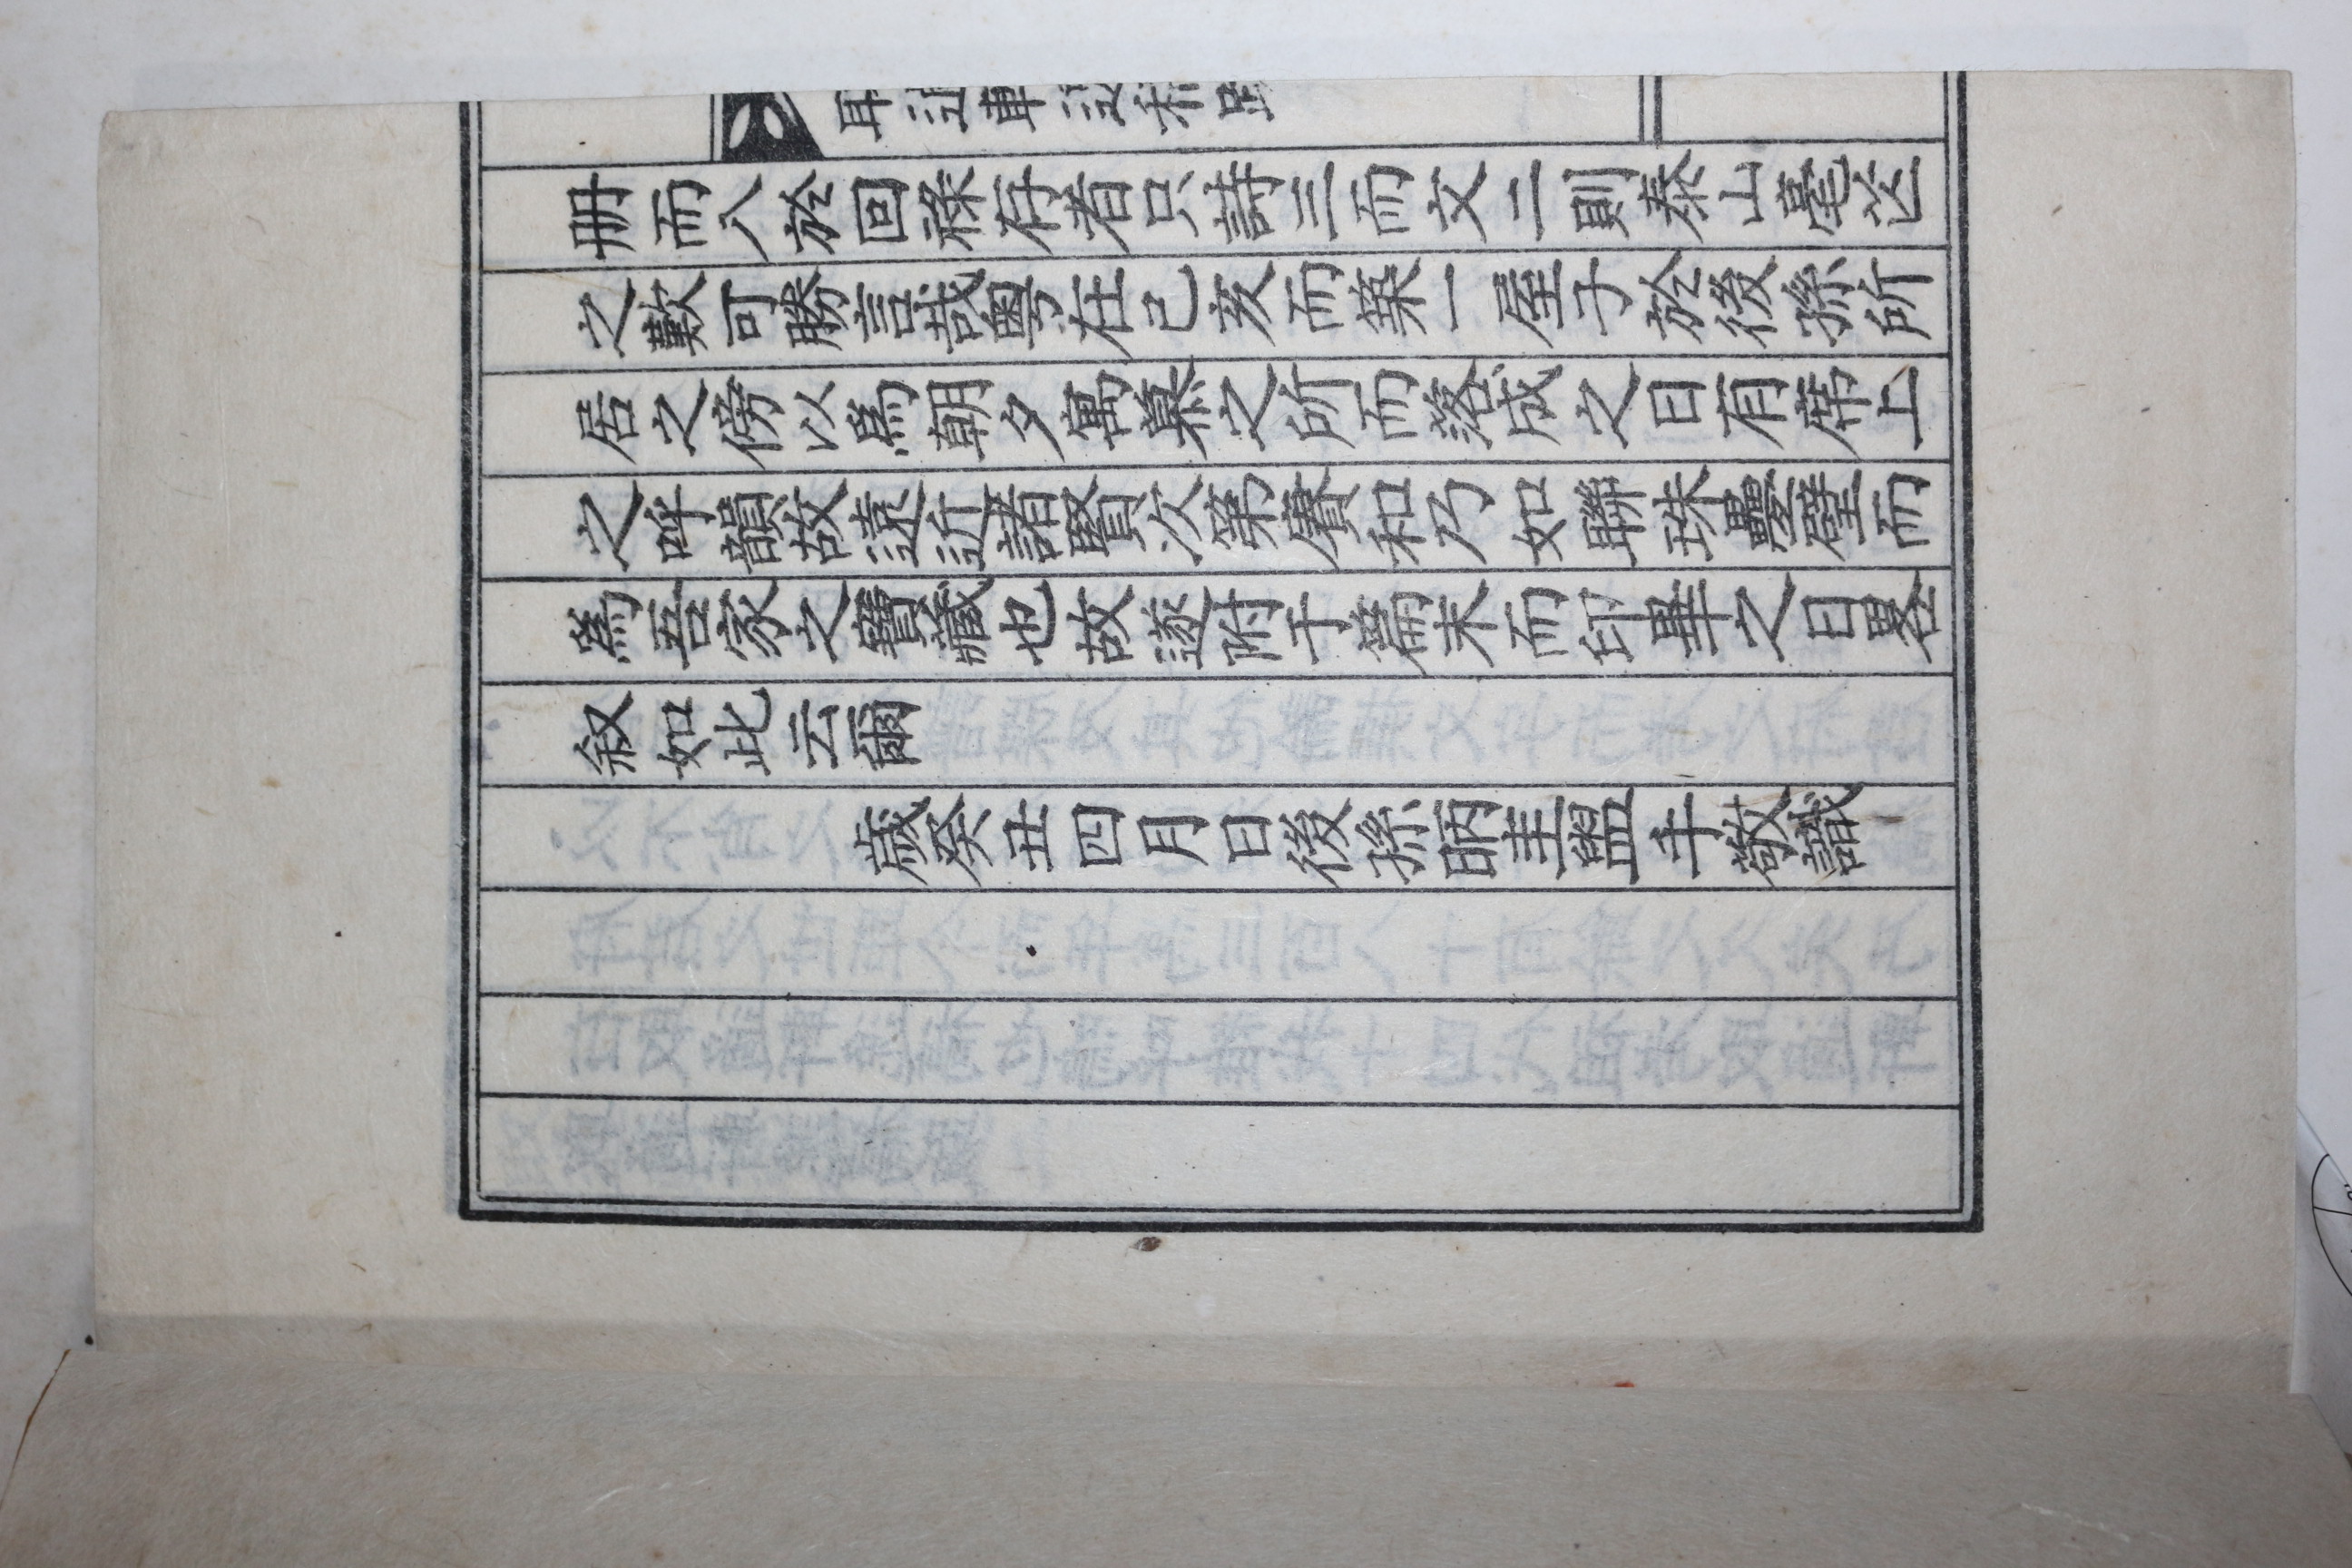 取適軒逸稿跋
册而入於回祿存者只詩三而文二則泰山毫芒
之歎可勝言哉粤在己亥而築一屋子於後孫所
居之傍以爲朝夕寓慕之所而落成之日有席上
之呼韻故遠近諸賢次第賡和乃如聯珠疊璧而
爲吾家之寶藏也故遂附于篇末而印畢之日畧
叙如此云爾
歲癸丑四月日後孫昞圭盥手敬識